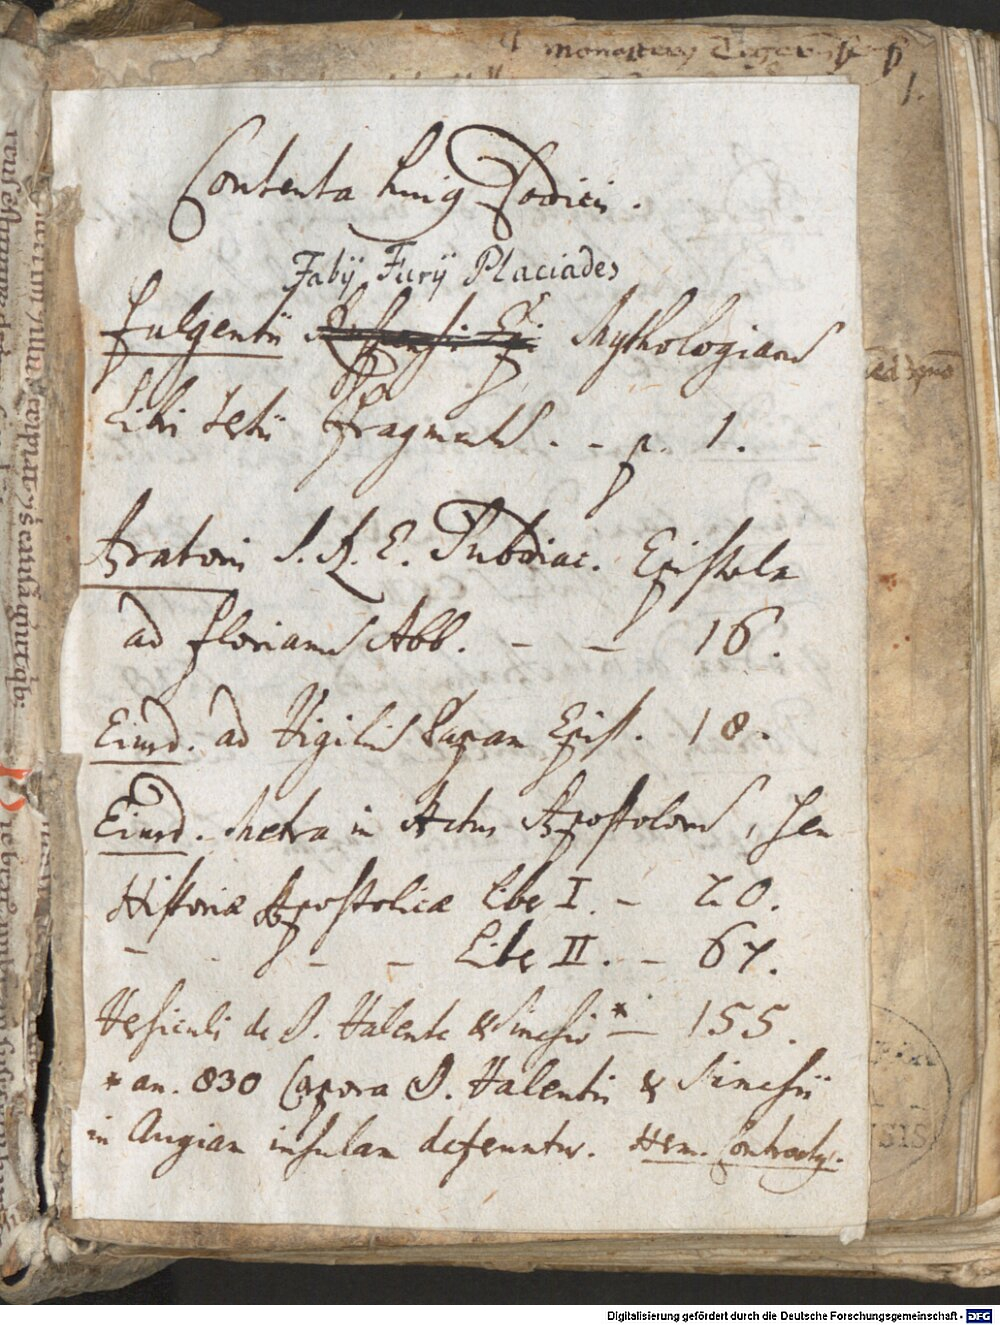 monastery Tegernsee
1.
Contenta huiꝰ Codicis.
Fabij Furij Placiades
Fulgentii Mythologiarū
Libri tertii Fragmentū. - p. 1.
Aratoris S. R. E. Subdiac. Epistola
ad Florianū Abb. - - 16.
Eiusd. ad Vigiliū Papam Epist. 18.
Eiusd. Metra in Actus Apostolorū, seu
Historiæ Apostolicæ Libr I. - 20.
- - - - Libr II. - 67.
Versiculi de S. Valente & Sinesio * - 155.
* an. 830 Corpora S. Valentis & Sinesii
in Augiam insulam deferuntur. Herm. Contractꝰ.
Digitalisierung gefördert durch die Deutsche Forschungsgemeinschaft - DFG